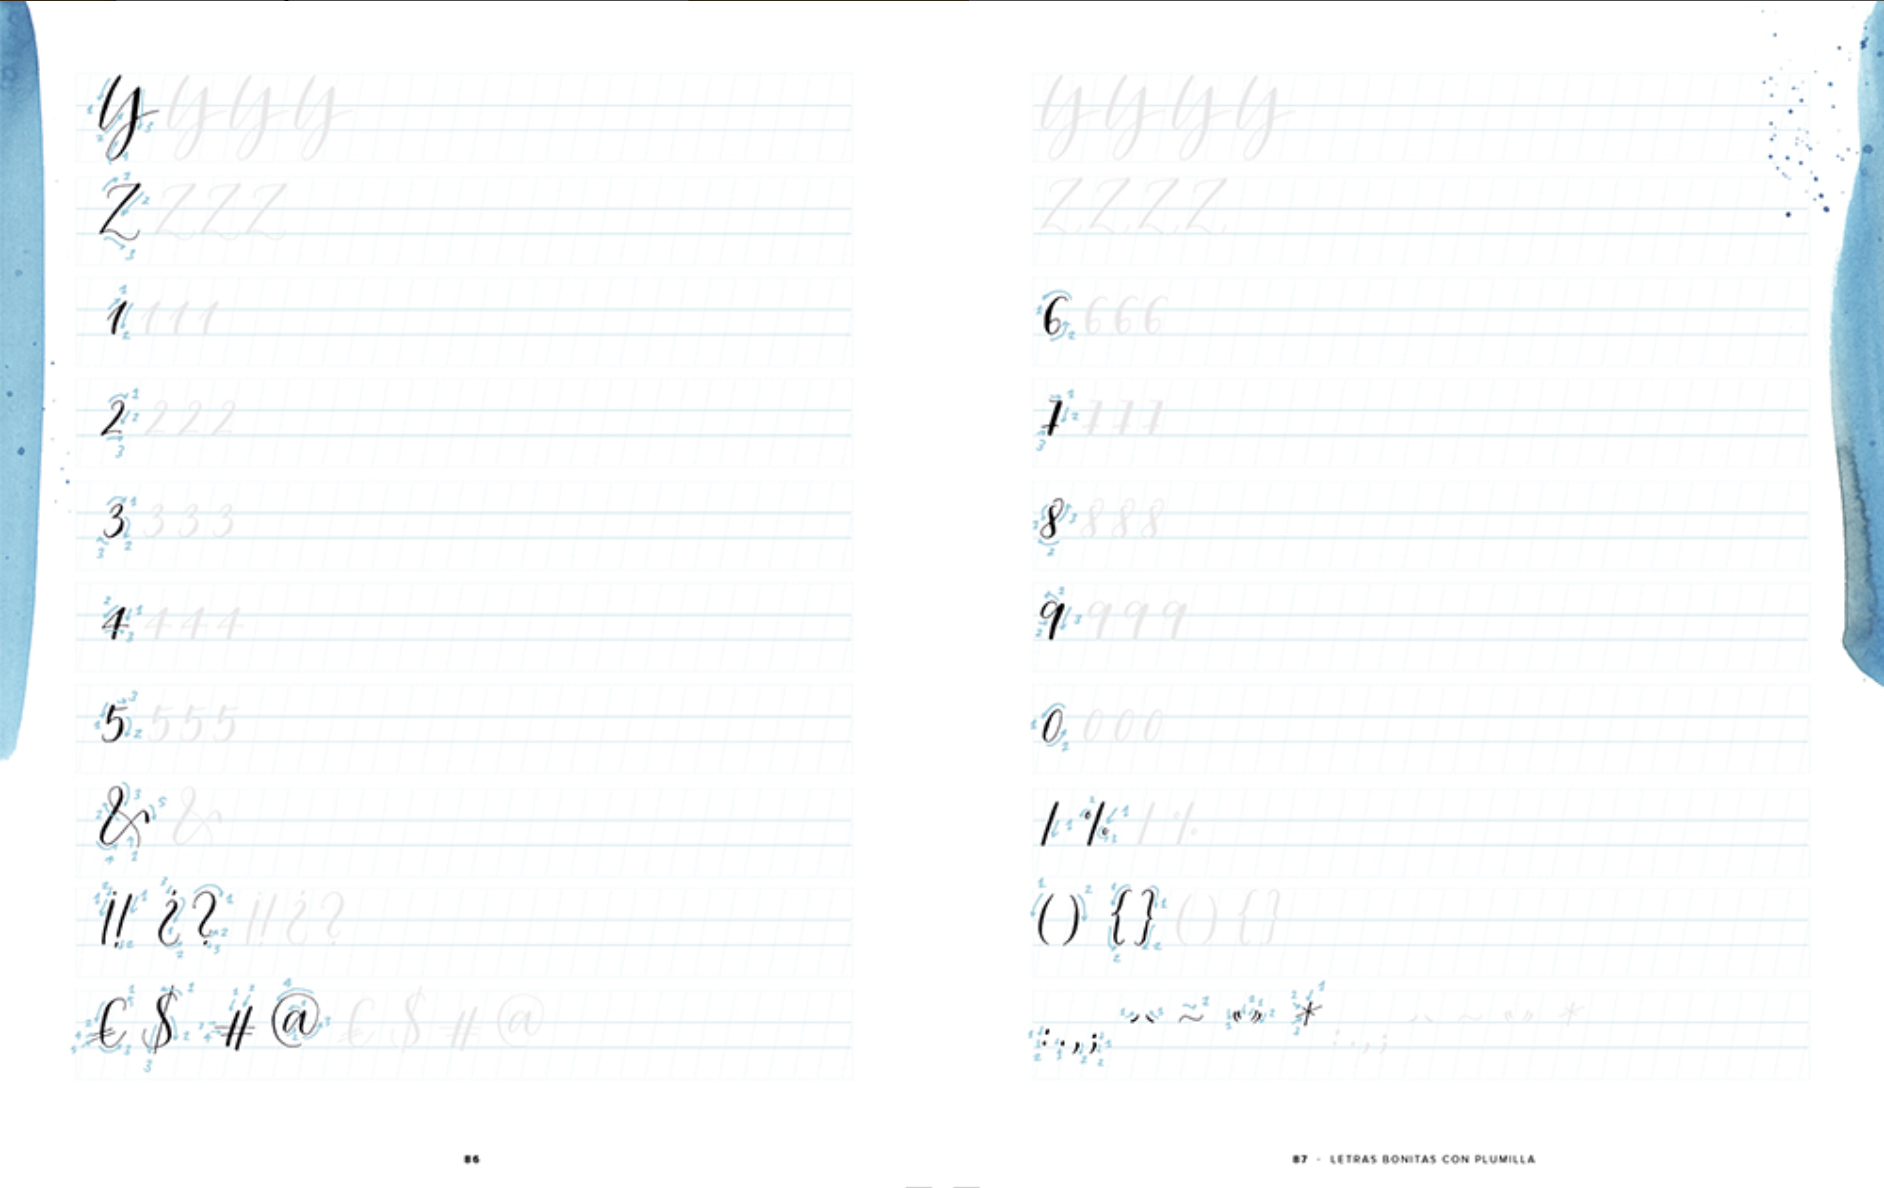 y y y y
Z Z Z Z
1 1 1 1
2 2 2 2
3 3 3 3
4 4 4 4
5 5 5 5
& &
¡! ¿? ¡! ¿?
€ $ # @ € $ # @
86
y y y y
Z Z Z Z
6 6 6 6
7 7 7 7
8 8 8 8
9 9 9 9
0 0 0 0
/ % / %
( ) { } ( ) { }
: . , ; ~ «» * : . , ; ~ «» *
87 - LETRAS BONITAS CON PLUMILLA